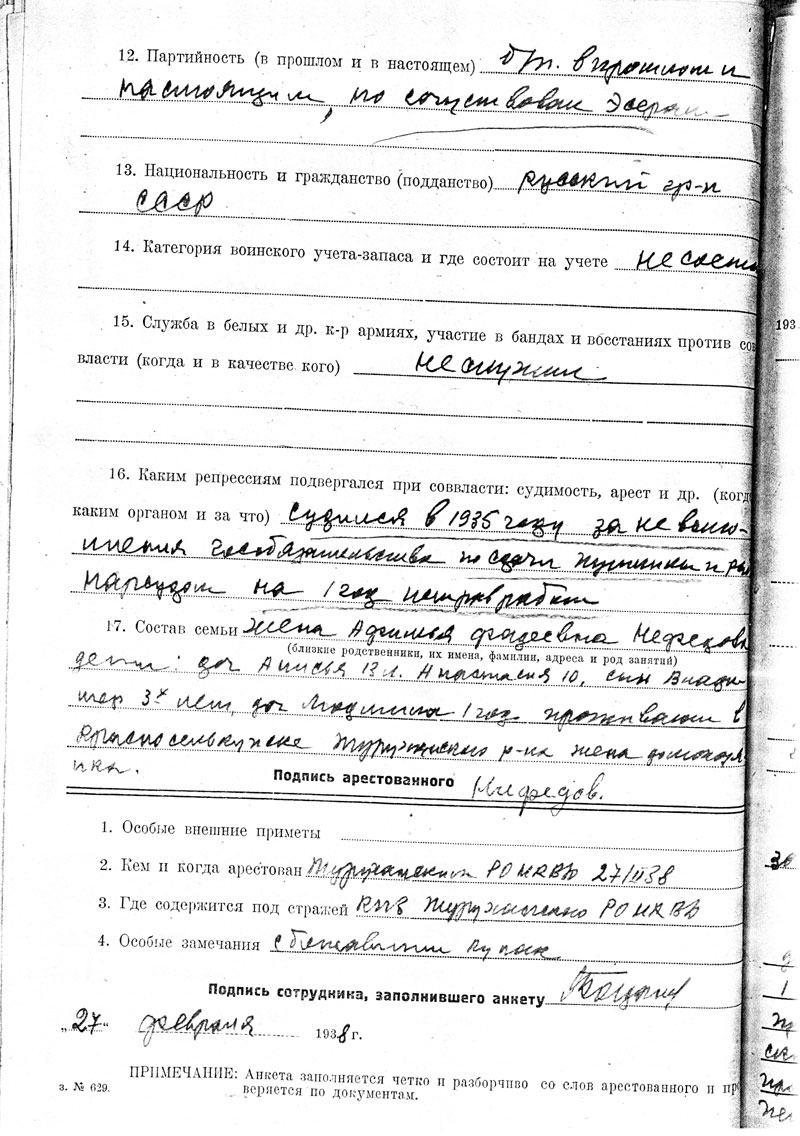 12. Партийность (в прошлом и в настоящем) б/п. в прошлом и
настоящим, но сочуствовал Эсерам
13. Национальность и гражданство (подданство) русский гр-н
СССР
14. Категория воинского учета-запаса и где состоит на учете не состо
193
15. Служба в белых и др. к-р армиях, участие в бандах и восстаниях против сов
власти (когда и в качестве кого) не служил
16. Каким репрессиям подвергался при соввласти: судимость, арест и др. (когд
каким органом и за что) судился в 1935 году за не выпо-
лнения гособязательства по сдачи пушнины и рыб
нарсудом на 1 год исправработ
17. Состав семьи жена Афимья Фадеевна Нефедова
(близкие родственники, их имена, фамилии, адреса и род занятий)
дети: доч Анисья 13 л. Анастасия 10, сын Влади-
мер 3х лет, доч Людмила 1 год проживают в
Красноселькупске Туруханского р-на жена домохозя-
йка.
Подпись арестованного Нифедов.
1. Особые внешние приметы
2. Кем и когда арестован Туруханским РО НКВД 27/II 38
3. Где содержится под стражей КПЗ Туруханского РО НКВД
4. Особые замечания
Подпись сотрудника, заполнившего анкету
„27“ февраля 1938 г.
ПРИМЕЧАНИЕ: Анкета заполняется четко и разборчиво со слов арестованного и пр
веряется по документам.
з. № 629.